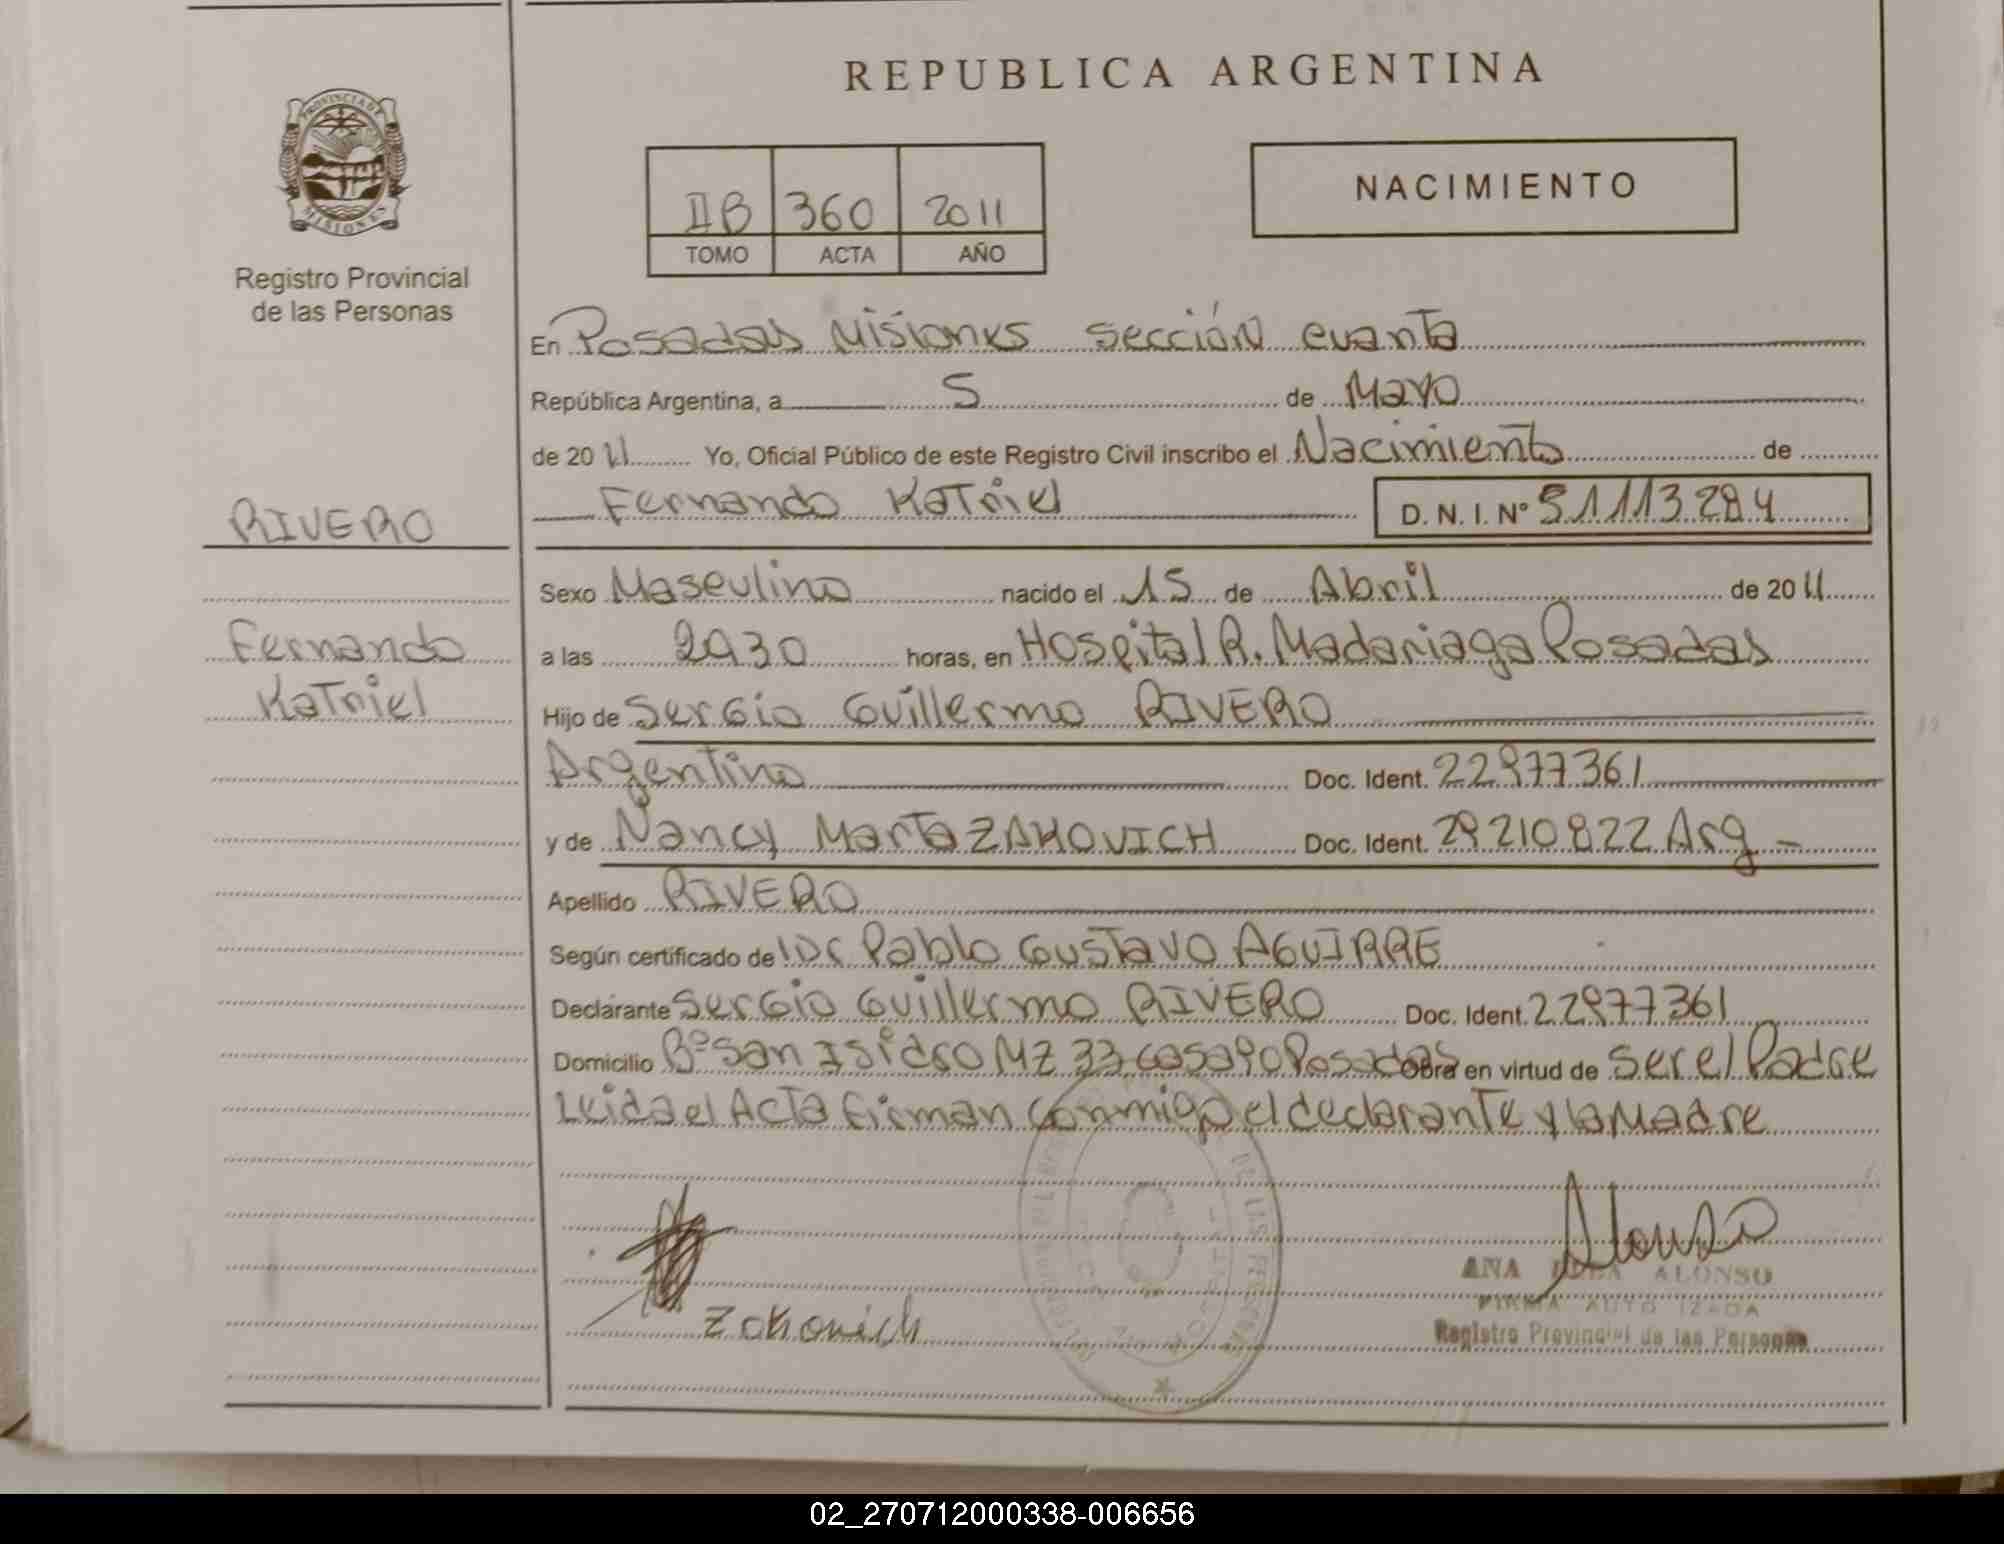 REPUBLICA ARGENTINA
PROVINCIA DE
MISIONES
Registro Provincial
de las Personas
IIB 360 2011
TOMO ACTA AÑO
NACIMIENTO
En Posadas Misiones sección cuarta
República Argentina, a 5 de Mayo
de 2011 Yo, Oficial Público de este Registro Civil inscribo el Nacimiento de
Fernando Katriel D. N. I. Nº 51113284
RIVERO
Fernando
Katriel
Sexo Masculino nacido el 15 de Abril de 2011
a las horas, en Hospital R. Madariaga Posadas
Hijo de Sergio Guillermo RIVERO
Argentino Doc. Ident. 22977361
y de Nancy Marta ZAKOVICH Doc. Ident. 29210822 Arg -
Apellido RIVERO
Según certificado de Pablo Gustavo AGUIRRE
Declarante Sergio Guillermo RIVERO Doc. Ident. 22977361
Domicilio Bº San Isidro MZ 33 casa 90 Posadas Obra en virtud de ser el Padre
Leida el Acta firman conmigo el declarante y la Madre
Zakovich
Alonso
ANA ALONSO
FIRMA AUTORIZADA
Registro Provincial de las Personas
02_270712000338-006656